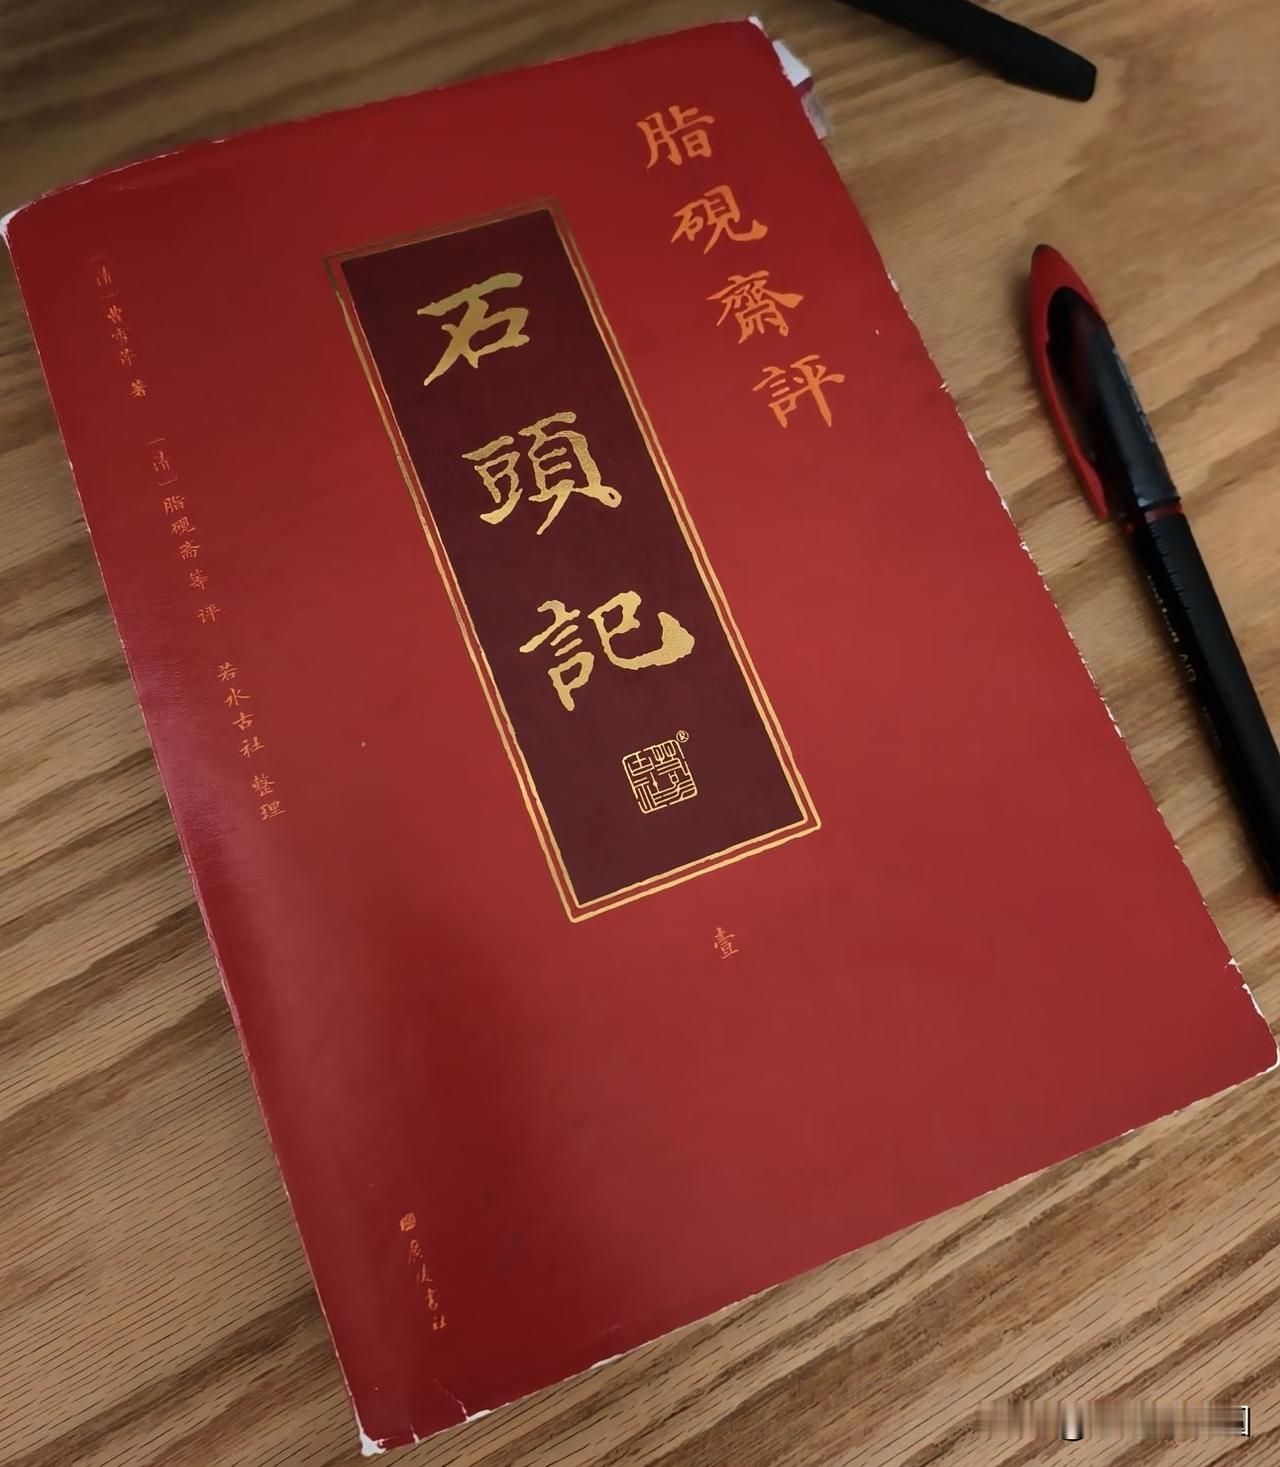 脂硯齋評
石頭記
®
壹
［清］曹雪芹 著 ［清］脂硯斋等 评 若水古社 整理
广陵书社
uni